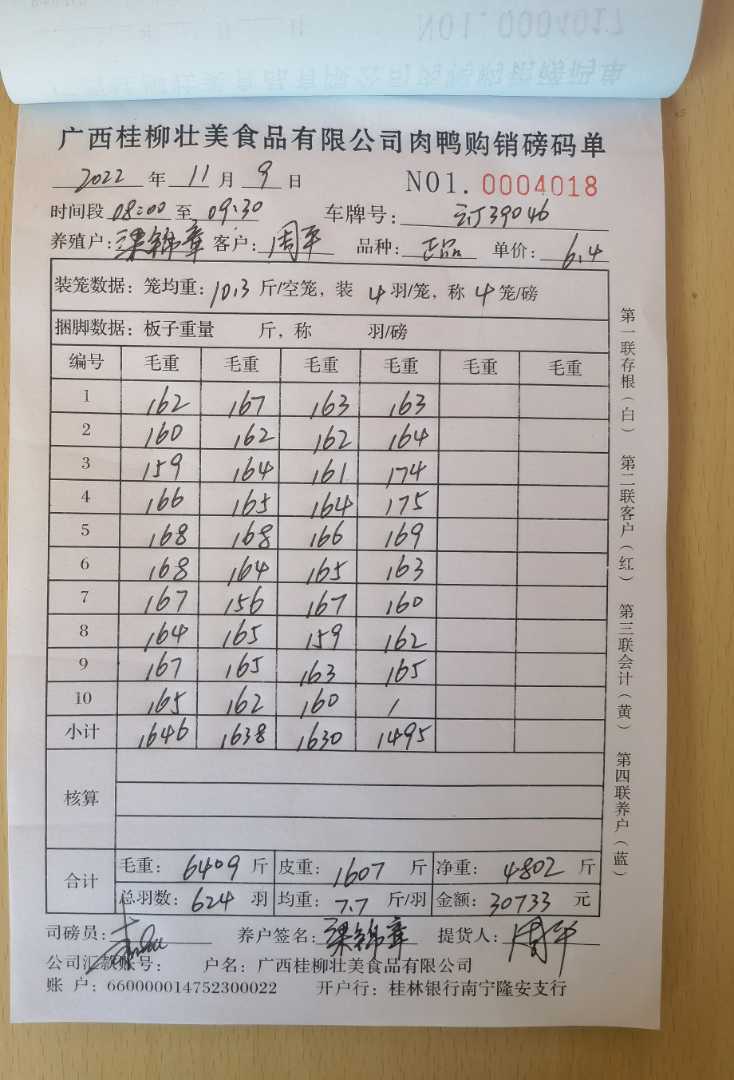 NO1.0004017
广西桂柳壮美食品有限公司肉鸭购销磅码单
2022 年 11 月 9 日 NO1. 0004018
时间段 08:00 至 09:30 车牌号: 订39046
养殖户: 梁锦章 客户: 周平 品种: 正品 单价: 6.4
装笼数据: 笼均重: 10.3 斤/空笼, 装 4 羽/笼, 称 4 笼/磅
捆脚数据: 板子重量 斤, 称 羽/磅
编号 毛重 毛重 毛重 毛重 毛重 毛重
1 162 167 163 163
2 160 162 162 164
3 159 164 161 174
4 166 165 164 175
5 168 168 166 169
6 168 164 165 163
7 167 156 167 160
8 164 165 159 162
9 167 165 163 165
10 165 162 160 /
小计 1646 1638 1630 1495
核算
合计 毛重: 6409 斤 皮重: 1607 斤 净重: 4802 斤
总羽数: 624 羽 均重: 7.7 斤/羽 金额: 30733 元
司磅员: 养户签名: 梁锦章 提货人: 周平
公司汇款账号: 户名: 广西桂柳壮美食品有限公司
账 户: 660000014752300022 开户行: 桂林银行南宁隆安支行
第一联存根(白) 第二联客户(红) 第三联会计(黄) 第四联养户(蓝)